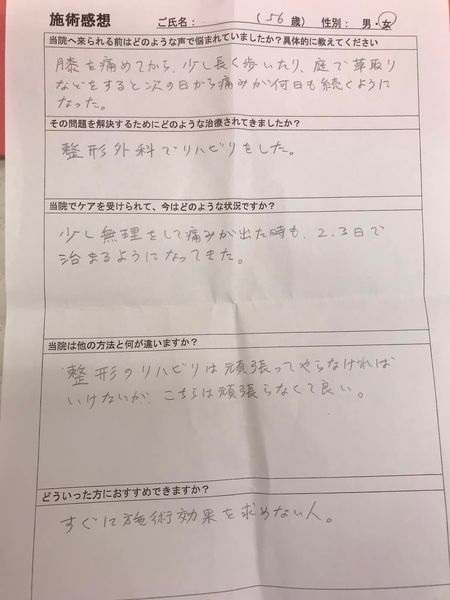 施術感想 ご氏名: (56歳) 性別: 男・女
当院へ来られる前はどのような声で悩まれていましたか？具体的に教えてください
膝を痛めてから、少し長く歩いたり、庭で草取り
などをすると次の日から痛みが何日も続くように
なった。
その問題を解決するためにどのような治療されてきましたか？
整形外科でリハビリをした。
当院でケアを受けられて、今はどのような状況ですか？
少し無理をして痛みが出た時も、2、3日で
治まるようになってきた。
当院は他の方法と何が違いますか？
整形のリハビリは頑張ってやらなければ
いけないが、こちらは頑張らなくて良い。
どういった方におすすめできますか？
すぐに施術効果を求めない人。